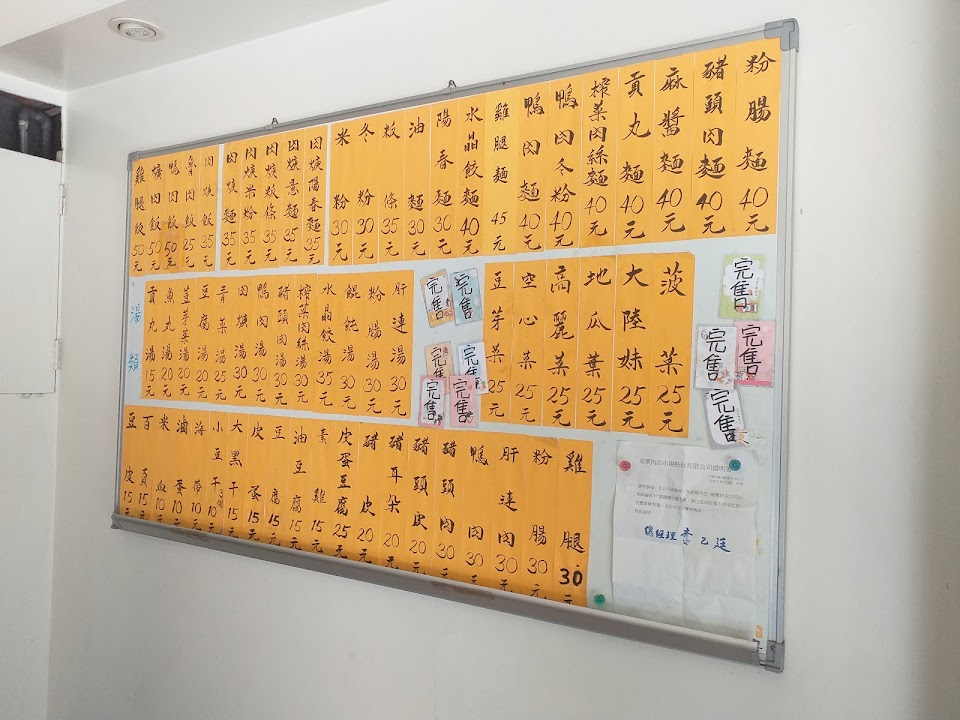 粉腸麵40元
豬頭肉麵40元
麻醬麵40元
貢丸麵40元
榨菜肉絲麵40元
鴨肉冬粉40元
鴨肉麵40元
雞腿麵45元
水晶餃麵40元
陽春麵30元
油麵30元
粄條35元
冬粉30元
米粉30元
肉焿陽春麵35元
肉焿意麵35元
肉焿粄條35元
肉焿米粉35元
肉焿麵35元
肉焿飯35元
魯肉飯25元
鴨肉飯50元
爌肉飯50元
雞腿飯50元
完售
完售
完售
完售
菠菜25元
大陸妹25元
地瓜葉25元
高麗菜25元
空心菜25元
豆芽菜25元
完售
完售
完售
完售
完售
完售
肝連湯30元
粉腸湯30元
餛飩湯30元
水晶餃湯35元
榨菜肉絲湯30元
豬頭肉湯30元
鴨肉湯30元
肉焿湯30元
青菜湯25元
豆腐湯20元
豆芽菜湯20元
魚丸湯20元
貢丸湯15元
湯類
總經理
雞腿30元
粉腸30元
肝連肉30元
鴨肉30元
豬頭肉30元
豬頭皮20元
豬耳朵20元
豬皮20元
皮蛋豆腐25元
素雞15元
油豆腐15元
豆腐15元
皮蛋15元
大黑干10元
小豆干3個10元
海帶10元
滷蛋10元
米血10元
百頁15元
豆皮15元